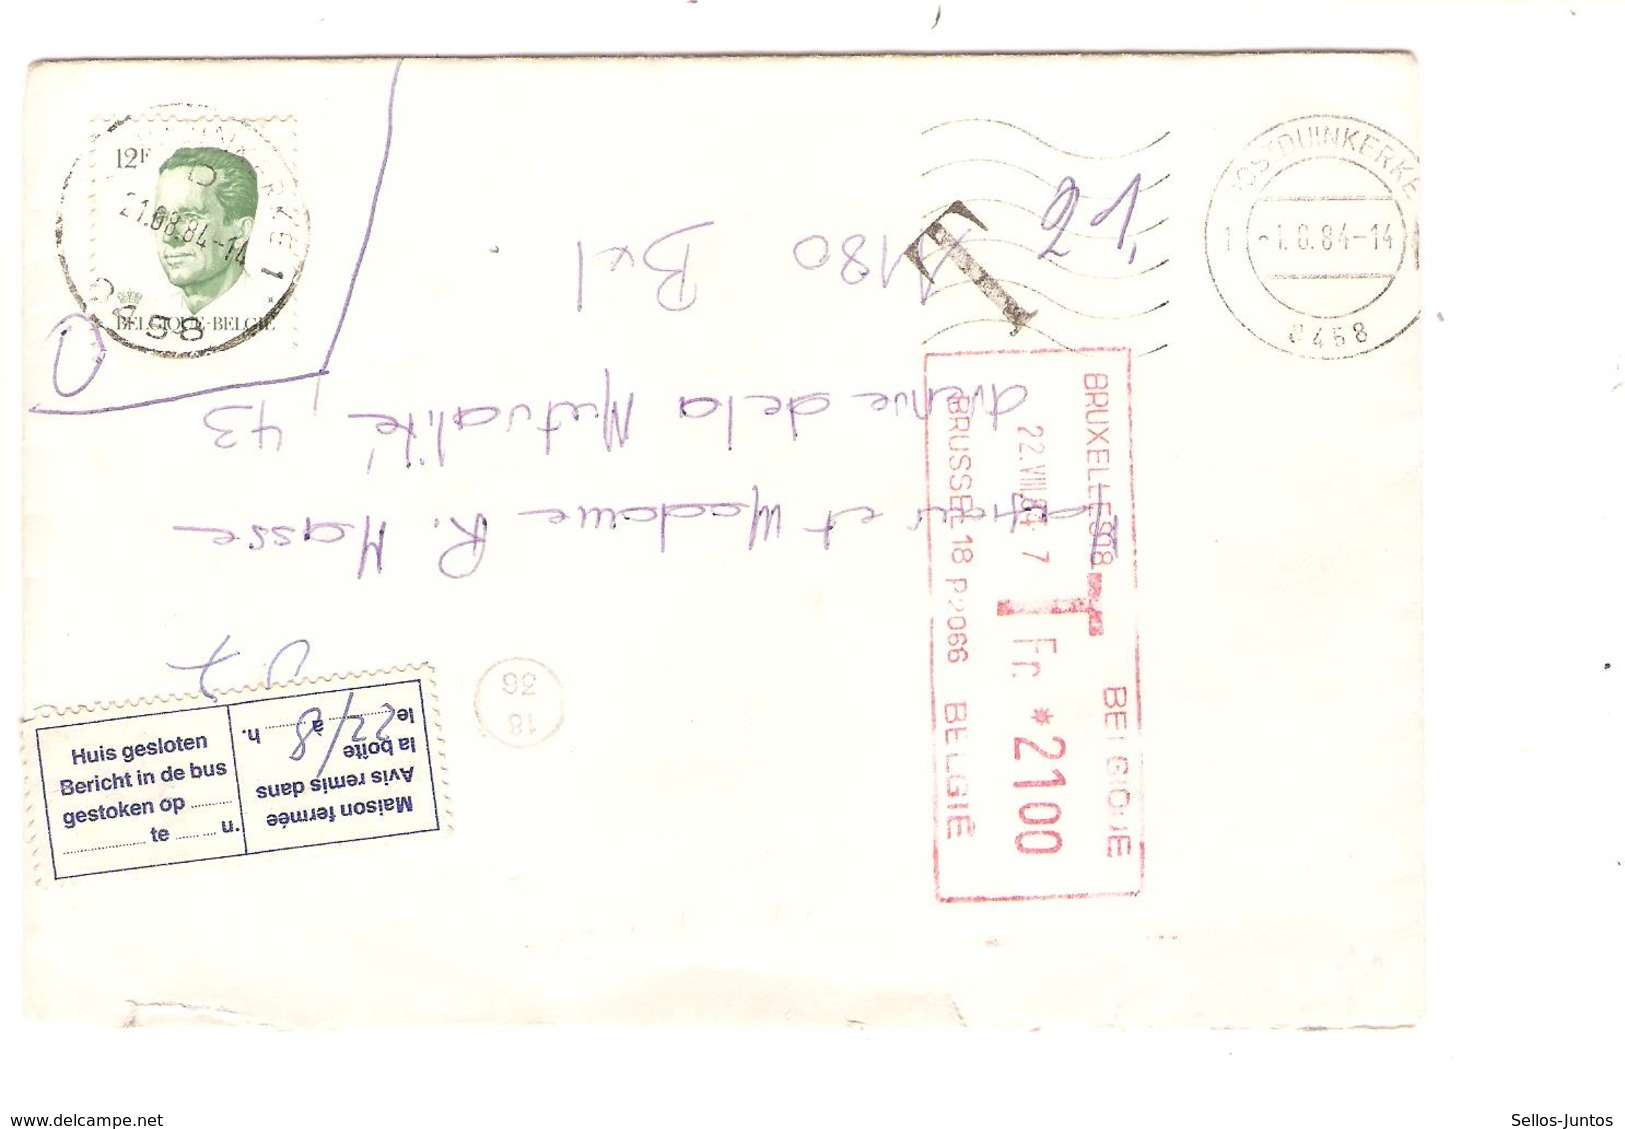 12F
BELGIQUE-BELGIE
21.08.84-14
1
8458
OOSTDUINKERKE
1
-1.8.84-14
8458
T
et Madame R. Masse
Avenue de la Mutualité 43
1180 Bxl
BRUXELLES 18 BELGIQUE
22.VIII.84 7 T Fr. *2100
BRUSSEL 18 P2066 BELGIË
18
36
Huis gesloten
Bericht in de bus
gestoken op
te u.
Maison fermée
Avis remis dans
la boîte
le 22/8 à h.
www.delcampe.net
Sellos-Juntos